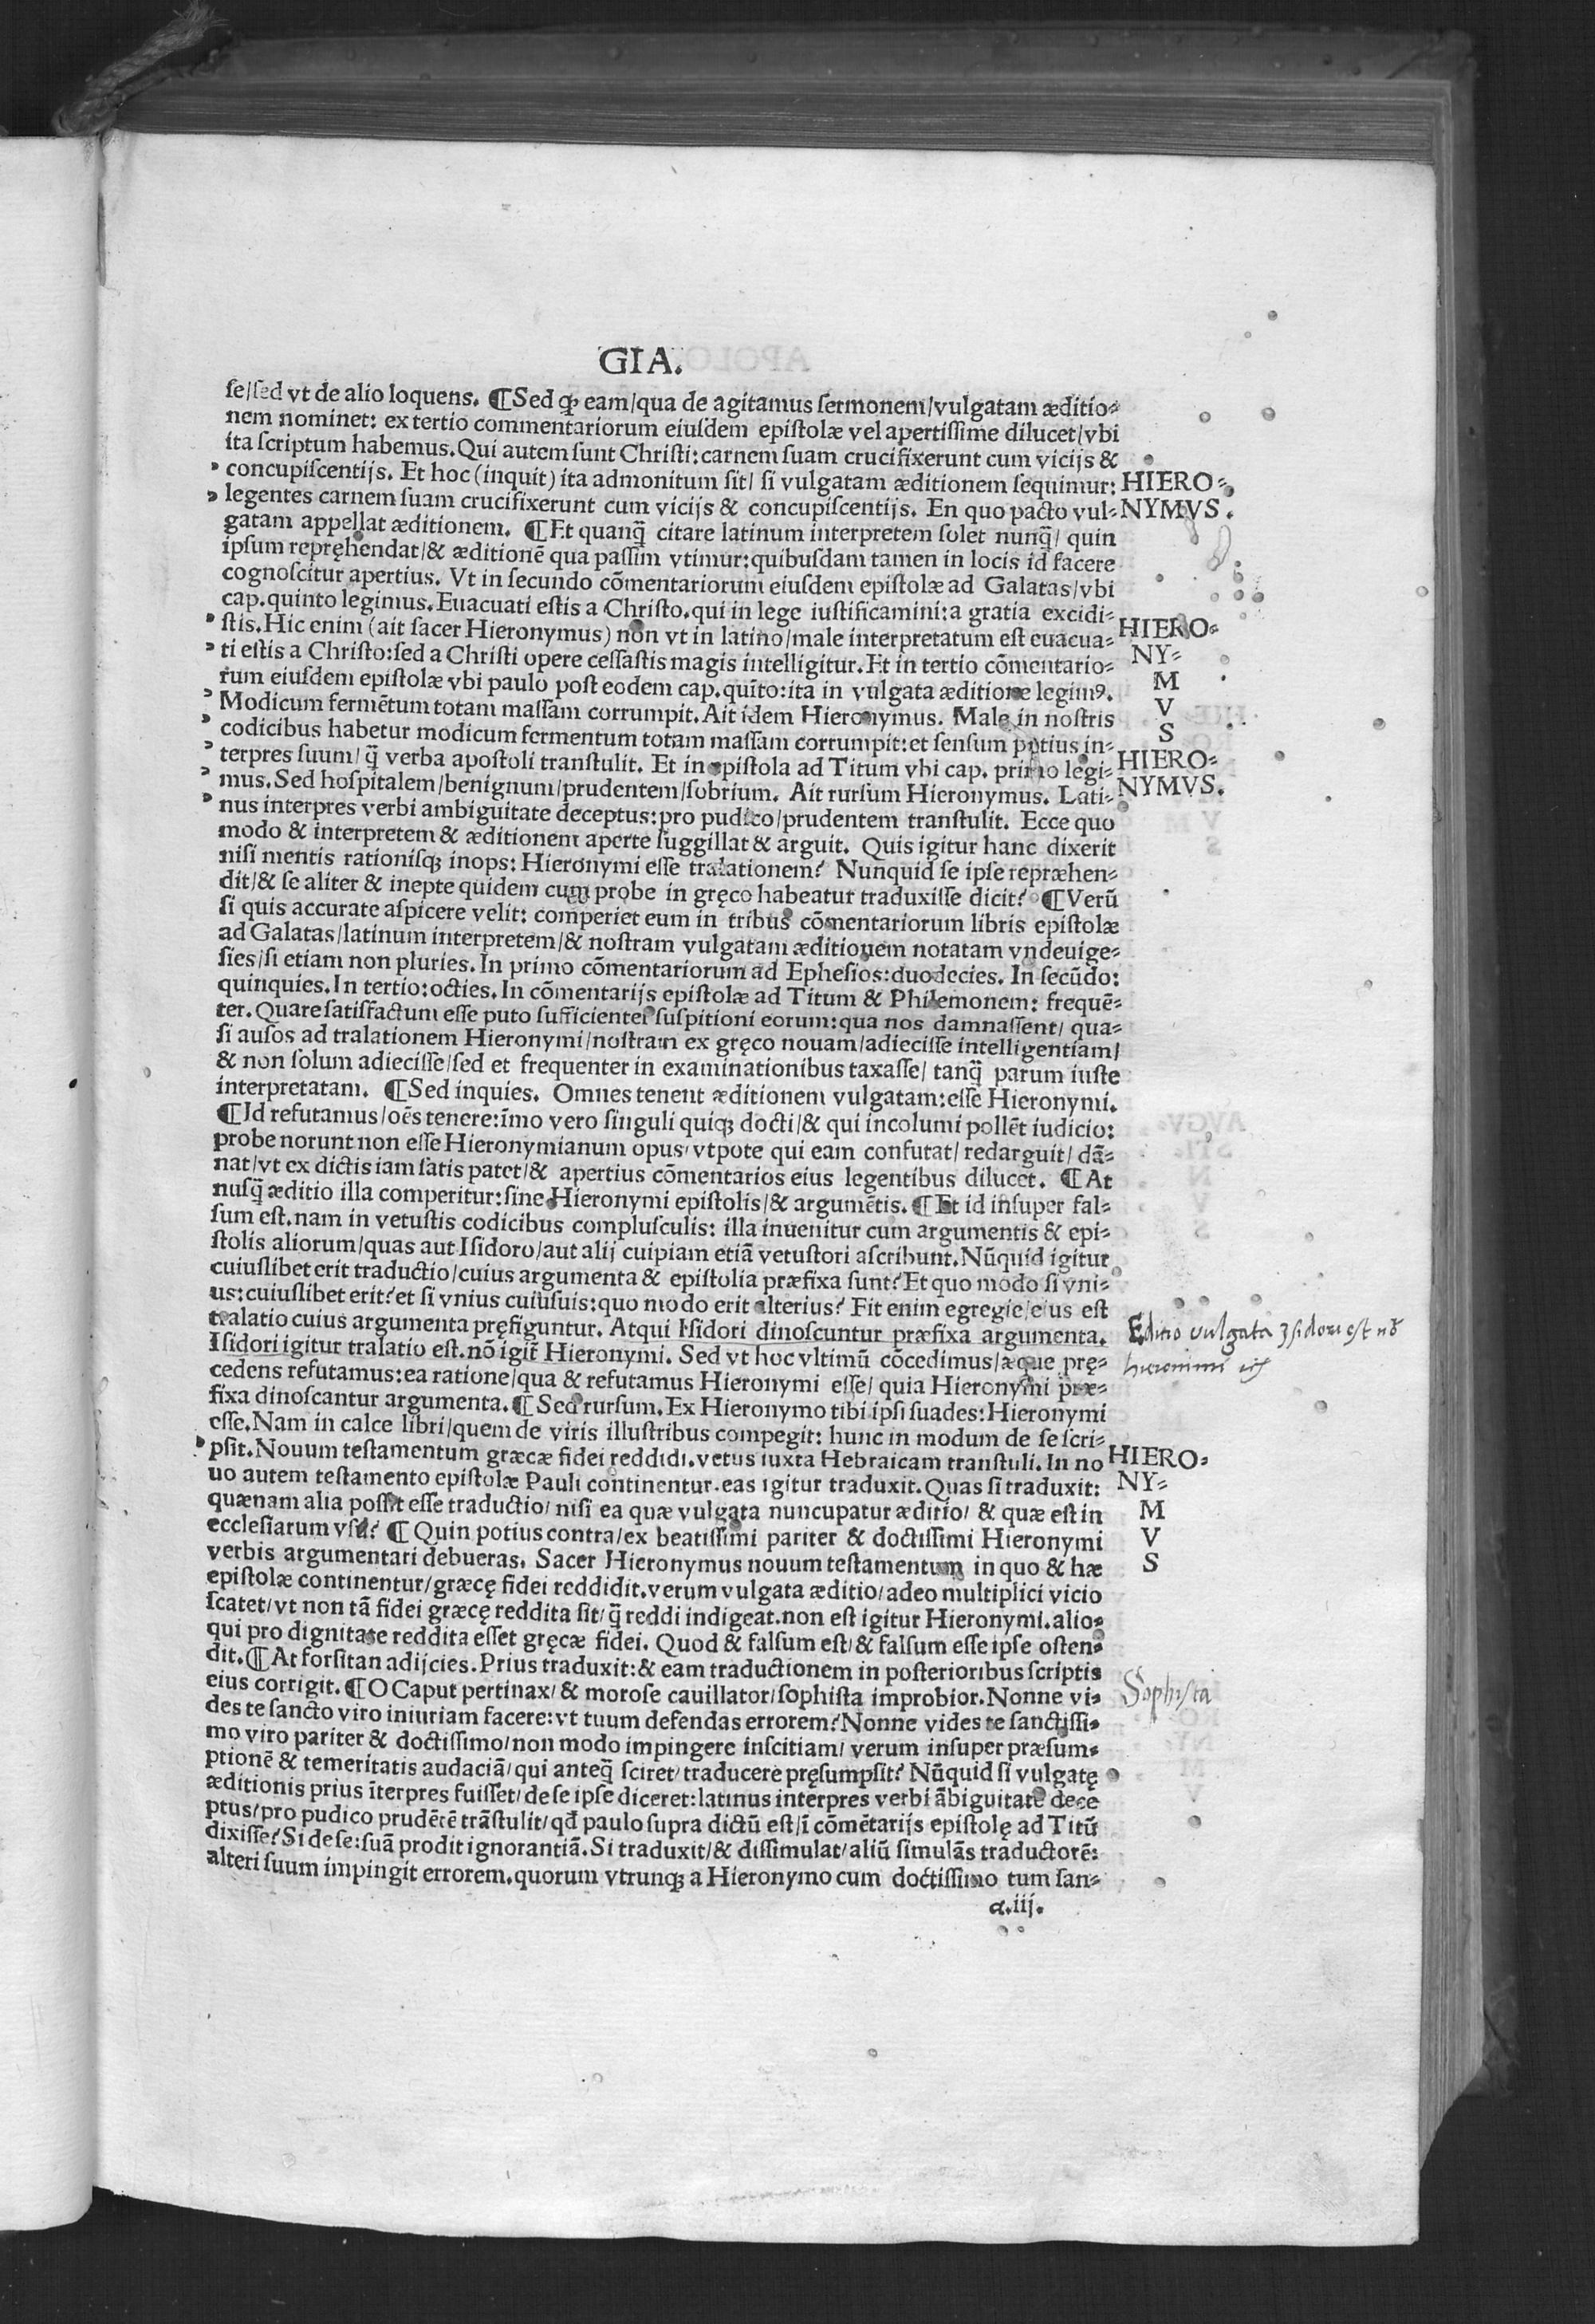 GIA.
se/sed vt de alio loquens. ¶Sed ꝙ eam/qua de agitamus sermonem/vulgatam æditio⸗
nem nominet: ex tertio commentariorum eiusdem epistolæ vel apertissime dilucet/vbi
ita scriptum habemus. Qui autem sunt Christi: carnem suam crucifixerunt cum vicijs &
concupiscentijs. Et hoc (inquit) ita admonitum sit/ si vulgatam æditionem sequimur:
HIERO⸗
legentes carnem suam crucifixerunt cum vicijs & concupiscentijs. En quo pacto vul⸗
NYMVS.
gatam appellat æditionem. ¶Et quanq̃ citare latinum interpretem solet nunq̃/ quin
ipsum repręhendat/& æditionē qua passim vtimur: quibusdam tamen in locis id facere
cognoscitur apertius. Vt in secundo cōmentariorum eiusdem epistolæ ad Galatas/vbi
cap. quinto legimus. Euacuati estis a Christo. qui in lege iustificamini: a gratia excidi⸗
stis. Hic enim (ait sacer Hieronymus) non vt in latino/male interpretatum est euacua⸗
HIERO⸗
ti estis a Christo: sed a Christi opere cessastis magis intelligitur. Et in tertio cōmentario⸗
NY⸗
rum eiusdem epistolæ vbi paulo post eodem cap. quīto: ita in vulgata æditione legimꝰ.
M
Modicum fermētum totam massam corrumpit. Ait idem Hieronymus. Male in nostris
V
codicibus habetur modicum fermentum totam massam corrumpit: et sensum potius in⸗
S
terpres suum/ q̃ verba apostoli transtulit. Et in epistola ad Titum vbi cap. primo legi⸗
HIERO⸗
mus. Sed hospitalem/benignum/prudentem/sobrium. Ait rursum Hieronymus. Lati⸗
NYMVS.
nus interpres verbi ambiguitate deceptus: pro pudico/prudentem transtulit. Ecce quo
modo & interpretem & æditionem aperte suggillat & arguit. Quis igitur hanc dixerit
nisi mentis rationisqꝫ inops: Hieronymi esse tralationem? Nunquid se ipse repræhen⸗
dit/& se aliter & inepte quidem cum probe in gręco habeatur traduxisse dicit? ¶Verū
si quis accurate aspicere velit: comperiet eum in tribus cōmentariorum libris epistolæ
ad Galatas/latinum interpretem/& nostram vulgatam æditionem notatam vndeuige⸗
sies/si etiam non pluries. In primo cōmentariorum ad Ephesios: duodecies. In secūdo:
quinquies. In tertio: octies. In cōmentarijs epistolæ ad Titum & Philemonem: frequē⸗
ter. Quare satisfactum esse puto sufficienter suspitioni eorum: qua nos damnassent/ qua⸗
si ausos ad tralationem Hieronymi/nostram ex gręco nouam/adiecisse intelligentiam/
& non solum adiecisse/sed et frequenter in examinationibus taxasse/ tanq̃ parum iuste
interpretatam. ¶Sed inquies. Omnes tenent æditionem vulgatam: esse Hieronymi.
¶Id refutamus/oēs tenere: īmo vero singuli quiqꝫ docti/& qui incolumi pollēt iudicio:
probe norunt non esse Hieronymianum opus/vtpote qui eam confutat/redarguit/dā⸗
nat/vt ex dictis iam satis patet/& apertius cōmentarios eius legentibus dilucet. ¶At
nusq̃ æditio illa comperitur: sine Hieronymi epistolis/& argumētis. ¶Et id insuper fal⸗
sum est. nam in vetustis codicibus complusculis: illa inuenitur cum argumentis & epi⸗
stolis aliorum/quas aut Isidoro/aut alij cuipiam etiā vetustori ascribunt. Nūquid igitur
cuiuslibet erit traductio/cuius argumenta & epistolia præfixa sunt? Et quo modo si vni⸗
us: cuiuslibet erit? et si vnius cuiusuis: quo modo erit alterius? Fit enim egregie/eius est
tralatio cuius argumenta pręfiguntur. Atqui Isidori dinoscuntur præfixa argumenta.
Editio vulgata Isidori est nō
Isidori igitur tralatio est. nō igit̃ Hieronymi. Sed vt hoc vltimū cōcedimus/æque prę⸗
hieronimi
cedens refutamus: ea ratione/qua & refutamus Hieronymi esse/ quia Hieronymi præ⸗
fixa dinoscantur argumenta. ¶Sed rursum. Ex Hieronymo tibi ipsi suades: Hieronymi
esse. Nam in calce libri/quem de viris illustribus compegit: hunc in modum de se scri⸗
psit. Nouum testamentum græcæ fidei reddidi. vetus iuxta Hebraicam transtuli. In no
HIERO⸗
uo autem testamento epistolæ Pauli continentur. eas igitur traduxit. Quas si traduxit:
NY⸗
quænam alia posset esse traductio/ nisi ea quæ vulgata nuncupatur æditio/ & quæ est in
M
ecclesiarum vsu? ¶Quin potius contra/ex beatissimi pariter & doctissimi Hieronymi
V
verbis argumentari debueras. Sacer Hieronymus nouum testamentum in quo & hæ
S
epistolæ continentur/græcę fidei reddidit. verum vulgata æditio/adeo multiplici vicio
scatet/vt non tā fidei græcę reddita sit/q̃ reddi indigeat. non est igitur Hieronymi. alio⸗
qui pro dignitate reddita esset gręcæ fidei. Quod & falsum est/& falsum esse ipse osten⸗
dit. ¶At forsitan adijcies. Prius traduxit: & eam traductionem in posterioribus scriptis
eius corrigit. ¶O Caput pertinax/ & morose cauillator/sophista improbior. Nonne vi⸗
Sophista
des te sancto viro iniuriam facere: vt tuum defendas errorem? Nonne vides te sanctissi⸗
mo viro pariter & doctissimo/non modo impingere inscitiam/ verum insuper præsum⸗
ptionē & temeritatis audaciā/qui anteq̃ sciret/traducere pręsumpsit? Nūquid si vulgatę
æditionis prius īterpres fuisset/de se ipse diceret: latinus interpres verbi ābiguitate dece
ptus/pro pudico prudētē trāstulit/qđ paulo supra dictū est/ī cōmētarijs epistolę ad Titū
dixisse? Si de se: suā prodit ignorantiā. Si traduxit/& dissimulat/aliū simulās traductorē:
alteri suum impingit errorem. quorum vtrunqꝫ a Hieronymo cum doctissimo tum san⸗
a.iij.